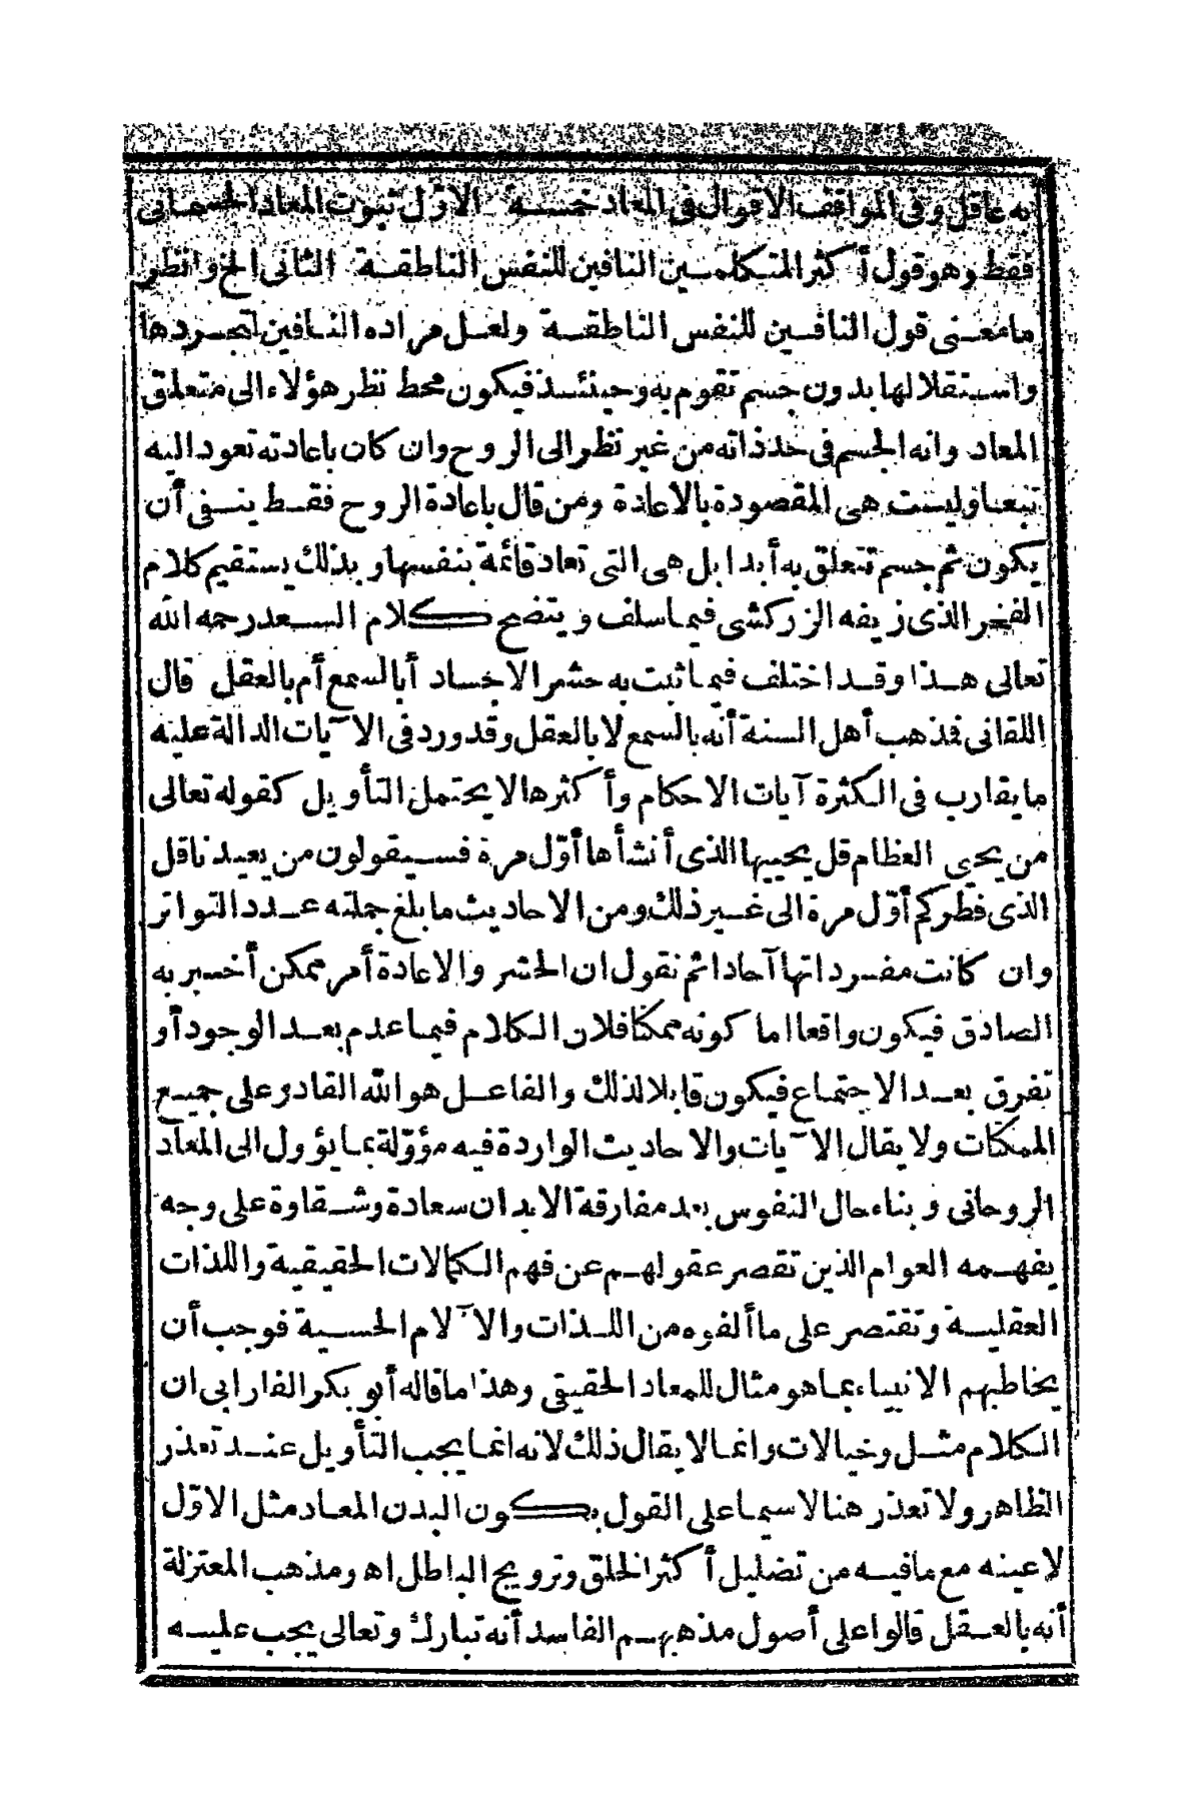 به عاقل وفى المواقف الاقوال فى المعاد خمسة الاوّل ثبوت المعاد الجسمانى
فقط وهو قول أكثر المتكلمين النافين للنفس الناطقة الثانى الخ وانظر
ما معنى قول النافين للنفس الناطقة ولعل مراده النافين لتجردها
واستقلالها بدون جسم تقوم به وحينئذ فيكون محط نظر هؤلاء الى متعلق
المعاد وانه الجسم فى حد ذاته من غير نظر الى الروح وان كان باعادته تعود اليه
تبعا وليست هى المقصودة بالاعادة ومن قال باعادة الروح فقط ينفى أن
يكون ثم جسم تتعلق به أبدا بل هى التى تعاد قائمة بنفسها وبذلك يستقيم كلام
الفخر الذى زيفه الزركشى فيما سلف ويتضح كلام السعد رحمه الله
تعالى هذا وقد اختلف فيما ثبت به حشر الاجساد أبالسمع أم بالعقل قال
اللقانى فذهب أهل السنة أنه بالسمع لا بالعقل وقد ورد فى الآيات الدالة عليه
ما يقارب فى الكثرة آيات الاحكام وأكثرها لا يحتمل التأويل كقوله تعالى
من يحيى العظام قل يحييها الذى أنشأها أوّل مرة فسيقولون من يعيدنا قل
الذى فطركم أوّل مرة الى غير ذلك ومن الاحاديث ما بلغ جملته عدد التواتر
وان كانت مفرداتها آحادا ثم نقول ان الحشر والاعادة أمر ممكن أخبر به
الصادق فيكون واقعا اما كونه ممكنا فلان الكلام فيما عدم بعد الوجود أو
تفرق بعد الاجتماع فيكون قابلا لذلك والفاعل هو الله القادر على جميع
الممكنات ولا يقال الآيات والاحاديث الواردة فيه مؤوّلة بما يؤول الى المعاد
الروحانى وبناء حال النفوس بعد مفارقة الابدان سعادة وشقاوة على وجه
يفهمه العوام الذين تقصر عقولهم عن فهم الكمالات الحقيقية واللذات
العقلية وتقتصر على ما ألفوه من اللذات والآلام الحسية فوجب أن
يخاطبهم الانبياء بما هو مثال للمعاد الحقيقى وهذا ما قاله أبو بكر الفارابى ان
الكلام مثل وخيالات وانما لا يقال ذلك لانه انما يجب التأويل عند تعذر
الظاهر ولا تعذر هنا لاسيما على القول بكون البدن المعاد مثل الاوّل
لا عينه مع ما فيه من تضليل أكثر الخلق وترويج الباطل اه ومذهب المعتزلة
أنه بالعقل قالوا على أصول مذهبهم الفاسد أنه تبارك وتعالى يجب عليه